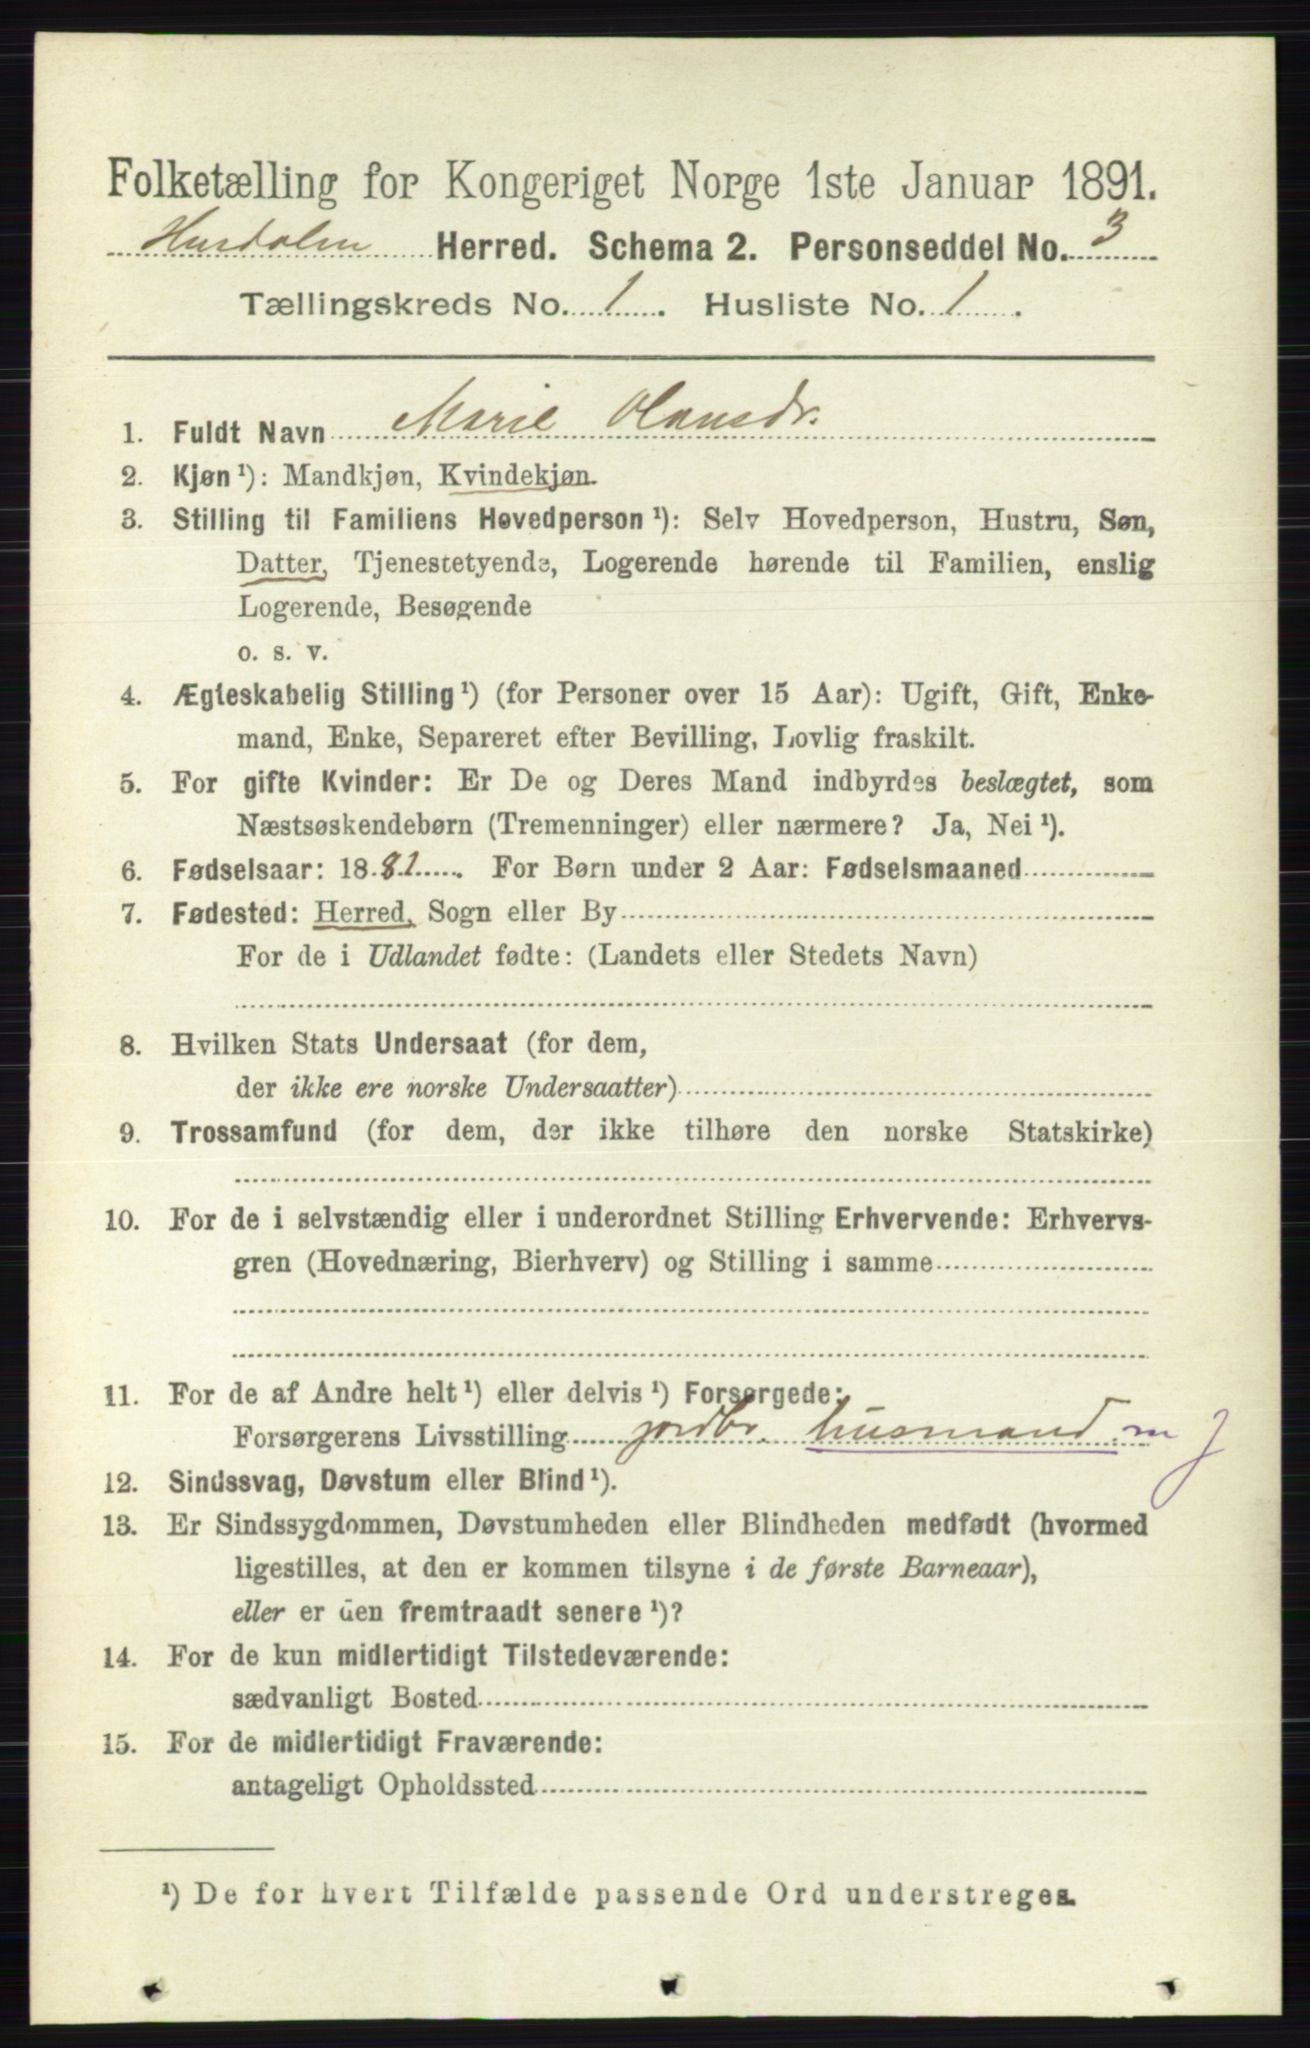 Folketælling for Kongeriget Norge 1ste Januar 1891.
Hurdalen Herred. Schema 2. Personseddel No. 3
Tællingskreds No. 1. Husliste No. 1.
1. Fuldt Navn Marie Hansdr.
2. Kjøn ¹): Mandkjøn, Kvindekjøn.
3. Stilling til Familiens Hovedperson ¹): Selv Hovedperson, Hustru, Søn,
Datter, Tjenestetyende, Logerende hørende til Familien, enslig
Logerende, Besøgende
o. s. v.
4. Ægteskabelig Stilling ¹) (for Personer over 15 Aar): Ugift, Gift, Enke-
mand, Enke, Separeret efter Bevilling, Lovlig fraskilt.
5. For gifte Kvinder: Er De og Deres Mand indbyrdes beslægtet, som
Næstsøskendebørn (Tremenninger) eller nærmere? Ja, Nei ¹).
6. Fødselsaar: 1882. For Børn under 2 Aar: Fødselsmaaned
7. Fødested: Herred, Sogn eller By
For de i Udlandet fødte: (Landets eller Stedets Navn)
8. Hvilken Stats Undersaat (for dem,
der ikke ere norske Undersaatter)
9. Trossamfund (for dem, der ikke tilhøre den norske Statskirke)
10. For de i selvstændig eller i underordnet Stilling Erhvervende: Erhvervs-
gren (Hovednæring, Bierhverv) og Stilling i samme
11. For de af Andre helt ¹) eller delvis ¹) Forsørgede:
Forsørgerens Livsstilling jordbr. husmand m J
12. Sindssvag, Døvstum eller Blind ¹).
13. Er Sindssygdommen, Døvstumheden eller Blindheden medfødt (hvormed
ligestilles, at den er kommen tilsyne i de første Barneaar),
eller er den fremtraadt senere ¹)?
14. For de kun midlertidigt Tilstedeværende:
sædvanligt Bosted
15. For de midlertidigt Fraværende:
antageligt Opholdssted
¹) De for hvert Tilfælde passende Ord understreges.